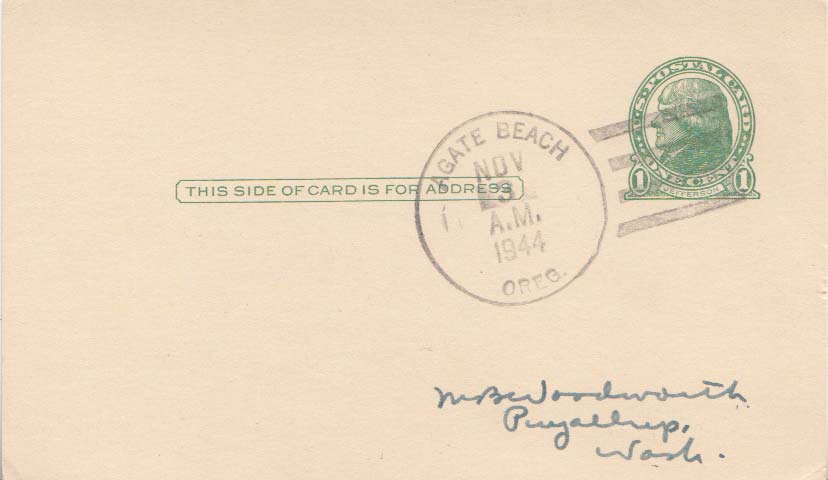 U.S. POSTAL CARD
ONE CENT
1 JEFFERSON 1
AGATE BEACH
NOV
3
A.M.
1944
OREG.
THIS SIDE OF CARD IS FOR ADDRESS
Woodworth
Puyallup,
Wash.